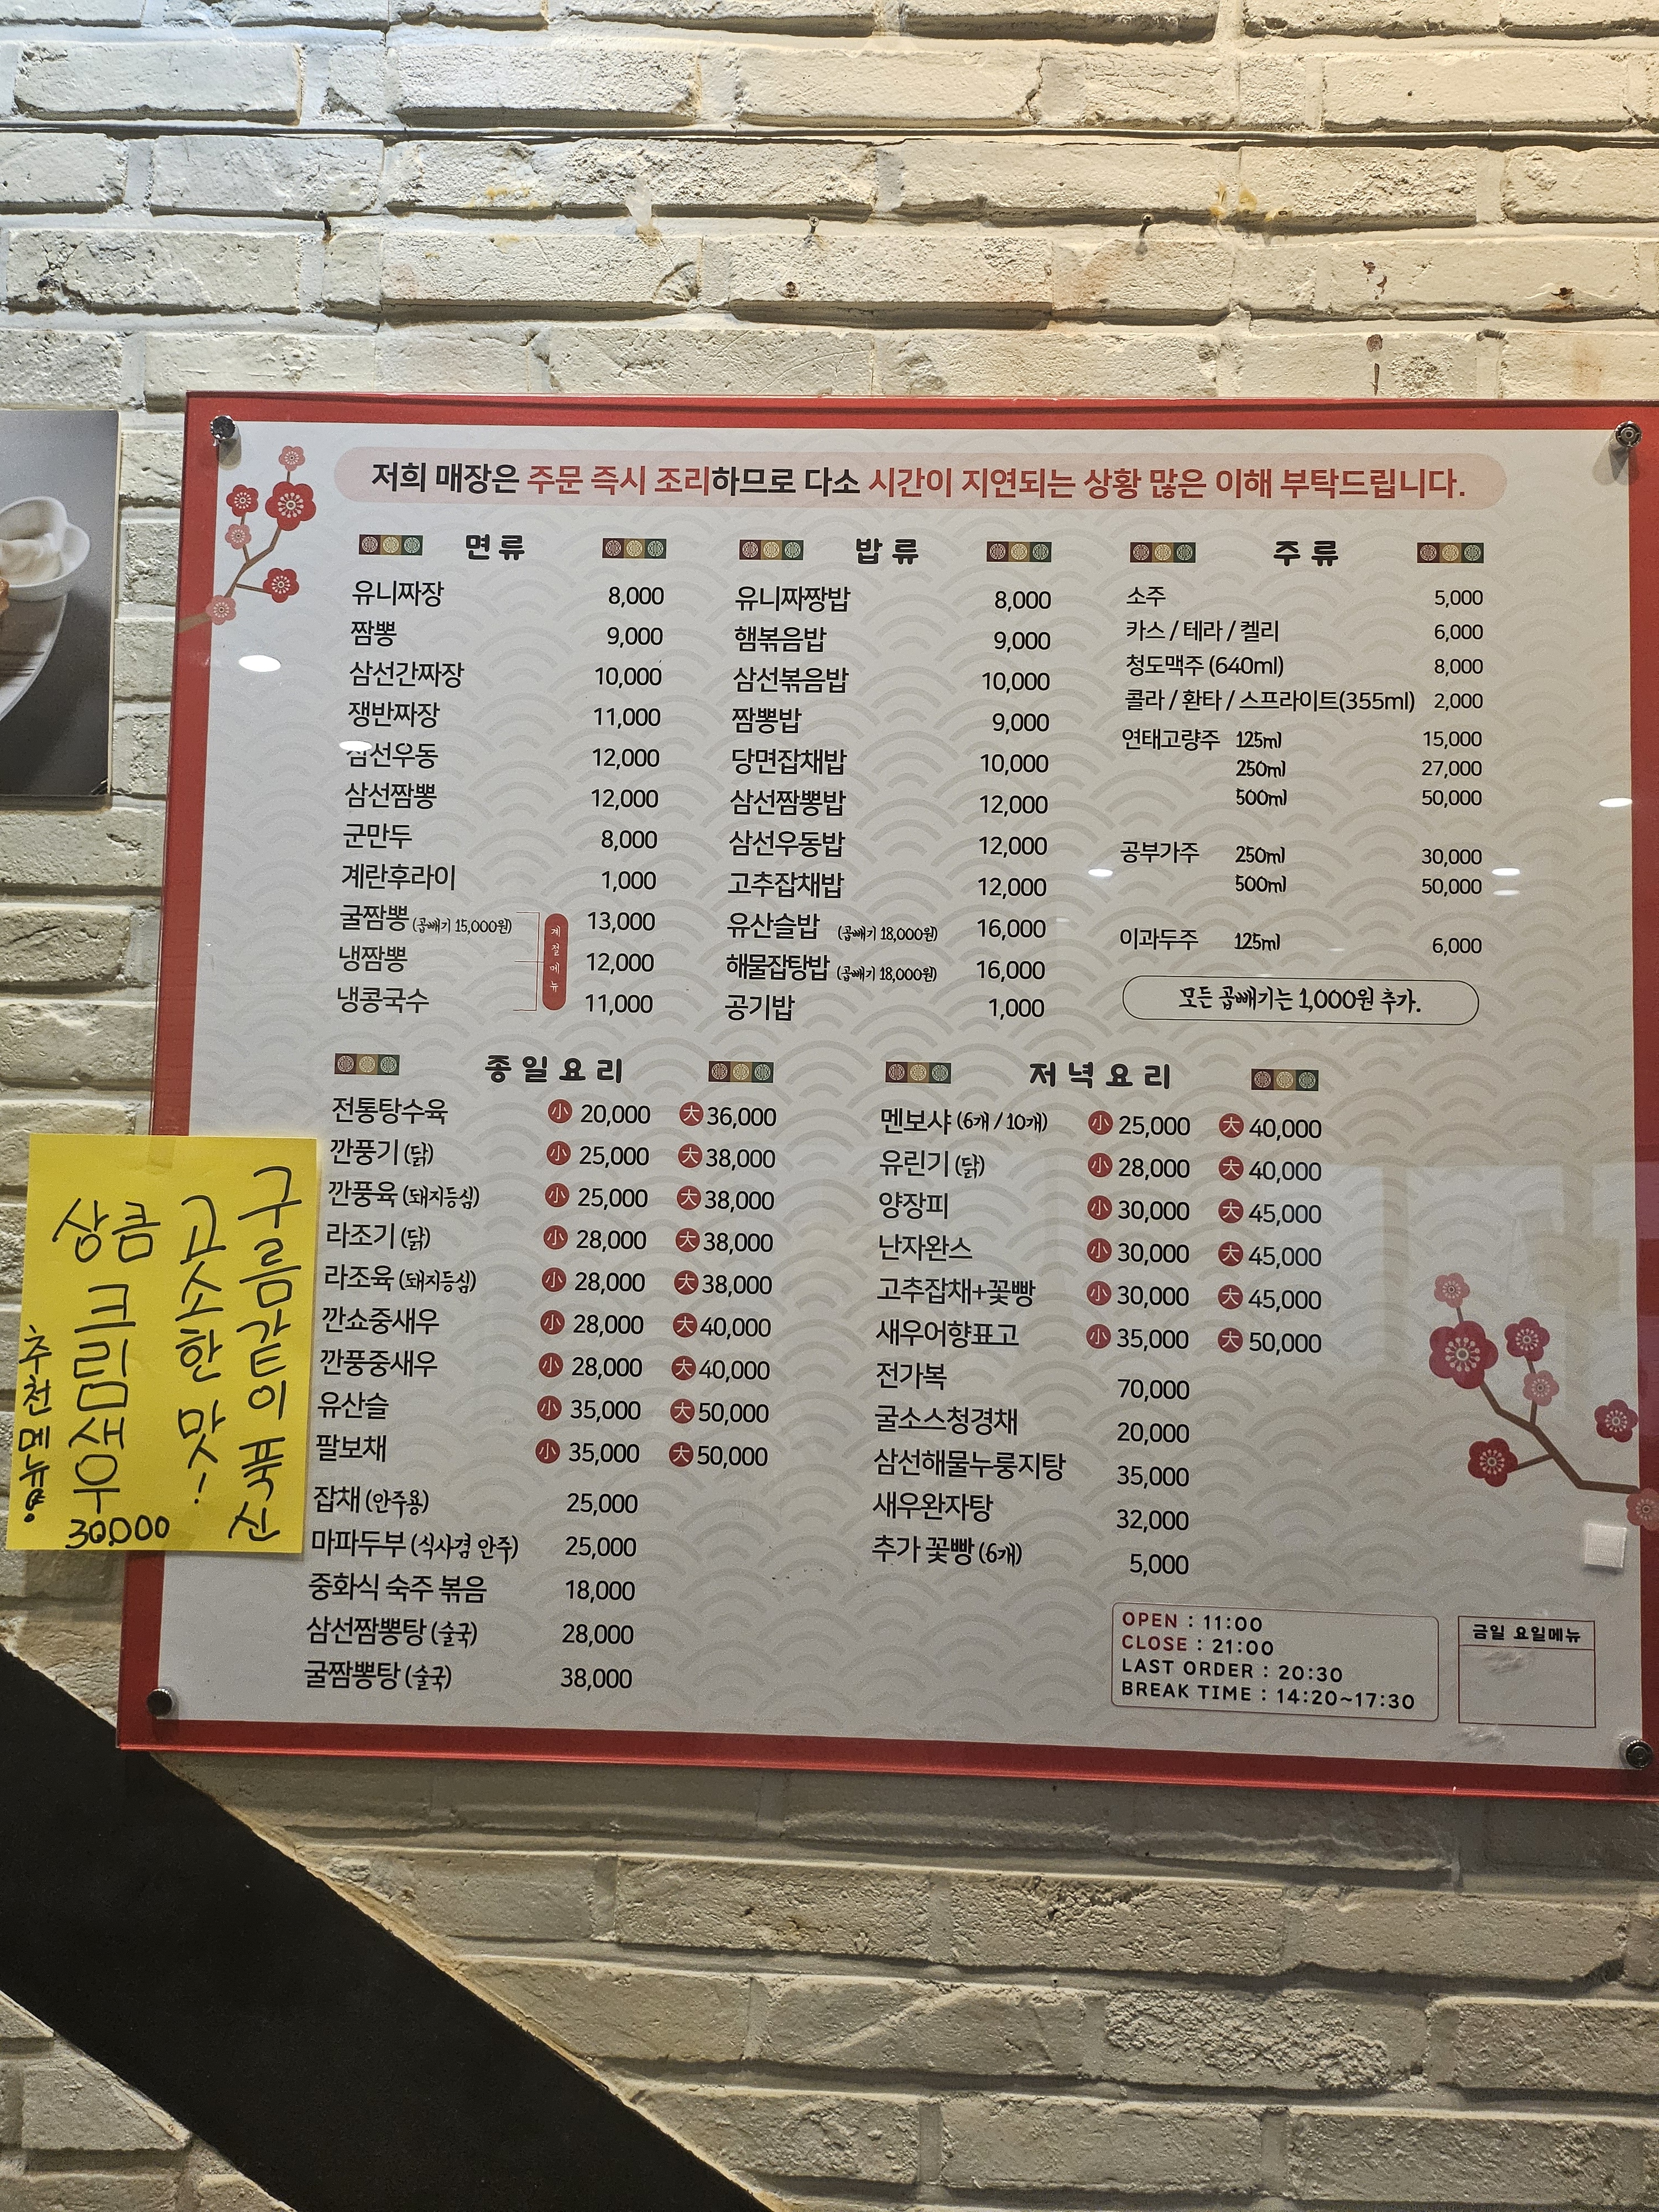 저희 매장은 주문 즉시 조리하므로 다소 시간이 지연되는 상황 많은 이해 부탁드립니다.
면류
유니짜장 8,000
짬뽕 9,000
삼선간짜장 10,000
쟁반짜장 11,000
삼선우동 12,000
삼선짬뽕 12,000
군만두 8,000
계란후라이 1,000
굴짬뽕 (곱빼기 15,000원) 13,000
냉짬뽕 12,000
냉콩국수 11,000
계절메뉴
밥류
유니짜장밥 8,000
햄볶음밥 9,000
삼선볶음밥 10,000
짬뽕밥 9,000
당면잡채밥 10,000
삼선짬뽕밥 12,000
삼선우동밥 12,000
고추잡채밥 12,000
유산슬밥 (곱빼기 18,000원) 16,000
해물잡탕밥 (곱빼기 18,000원) 16,000
공기밥 1,000
주류
소주 5,000
카스 / 테라 / 켈리 6,000
청도맥주 (640ml) 8,000
콜라 / 환타 / 스프라이트(355ml) 2,000
연태고량주 125ml 15,000
250ml 27,000
500ml 50,000
공부가주 250ml 30,000
500ml 50,000
이과두주 125ml 6,000
모든 곱빼기는 1,000원 추가.
종일요리
전통탕수육 小 20,000 大 36,000
깐풍기 (닭) 小 25,000 大 38,000
깐풍육 (돼지등심) 小 25,000 大 38,000
라조기 (닭) 小 28,000 大 38,000
라조육 (돼지등심) 小 28,000 大 38,000
깐쇼중새우 小 28,000 大 40,000
깐풍중새우 小 28,000 大 40,000
유산슬 小 35,000 大 50,000
팔보채 小 35,000 大 50,000
잡채 (안주용) 25,000
마파두부 (식사겸 안주) 25,000
중화식 숙주 볶음 18,000
삼선짬뽕탕 (술국) 28,000
굴짬뽕탕 (술국) 38,000
저녁요리
멘보샤 (6개 / 10개) 小 25,000 大 40,000
유린기 (닭) 小 28,000 大 40,000
양장피 小 30,000 大 45,000
난자완스 小 30,000 大 45,000
고추잡채+꽃빵 小 30,000 大 45,000
새우어향표고 小 35,000 大 50,000
전가복 70,000
굴소스청경채 20,000
삼선해물누룽지탕 35,000
새우완자탕 32,000
추가 꽃빵 (6개) 5,000
OPEN : 11:00
CLOSE : 21:00
LAST ORDER : 20:30
BREAK TIME : 14:20~17:30
금일 요일메뉴
구름같이 푹신
고소한 맛!
상큼 크림새우
30,000
추천메뉴